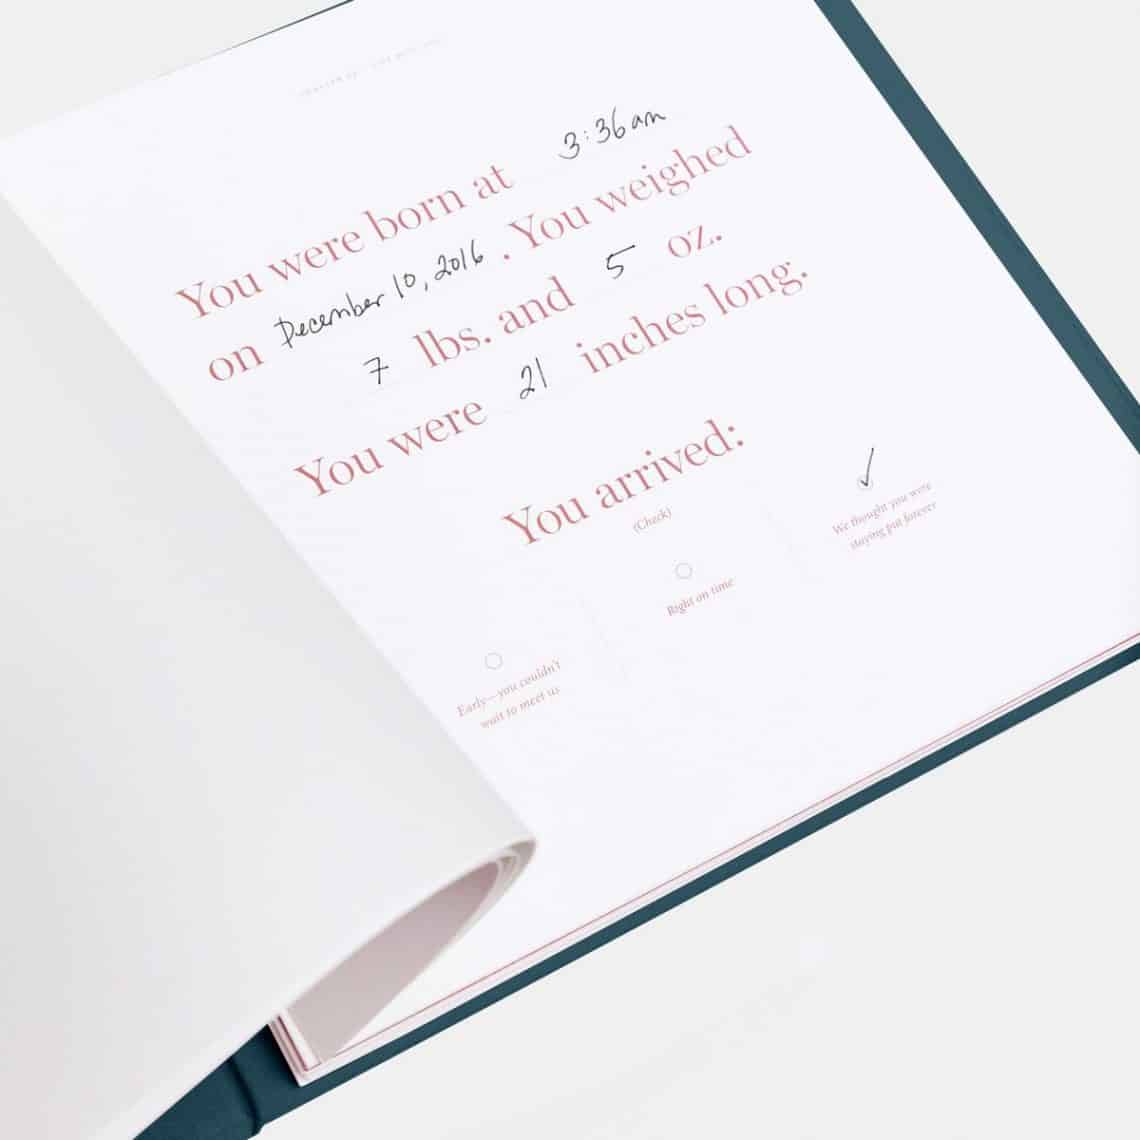 You were born at 3:36am
on December 10, 2016 . You weighed
7 lbs. and 5 oz.
You were 21 inches long.
You arrived:
(Check)
Early—you couldn't
wait to meet us
Right on time
We thought you were
staying put forever